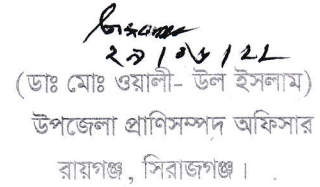 ২৯/০৬/২২
(ডাঃ মোঃ ওয়ালী- উল ইসলাম)
উপজেলা প্রাণিসম্পদ অফিসার
রায়গঞ্জ, সিরাজগঞ্জ।